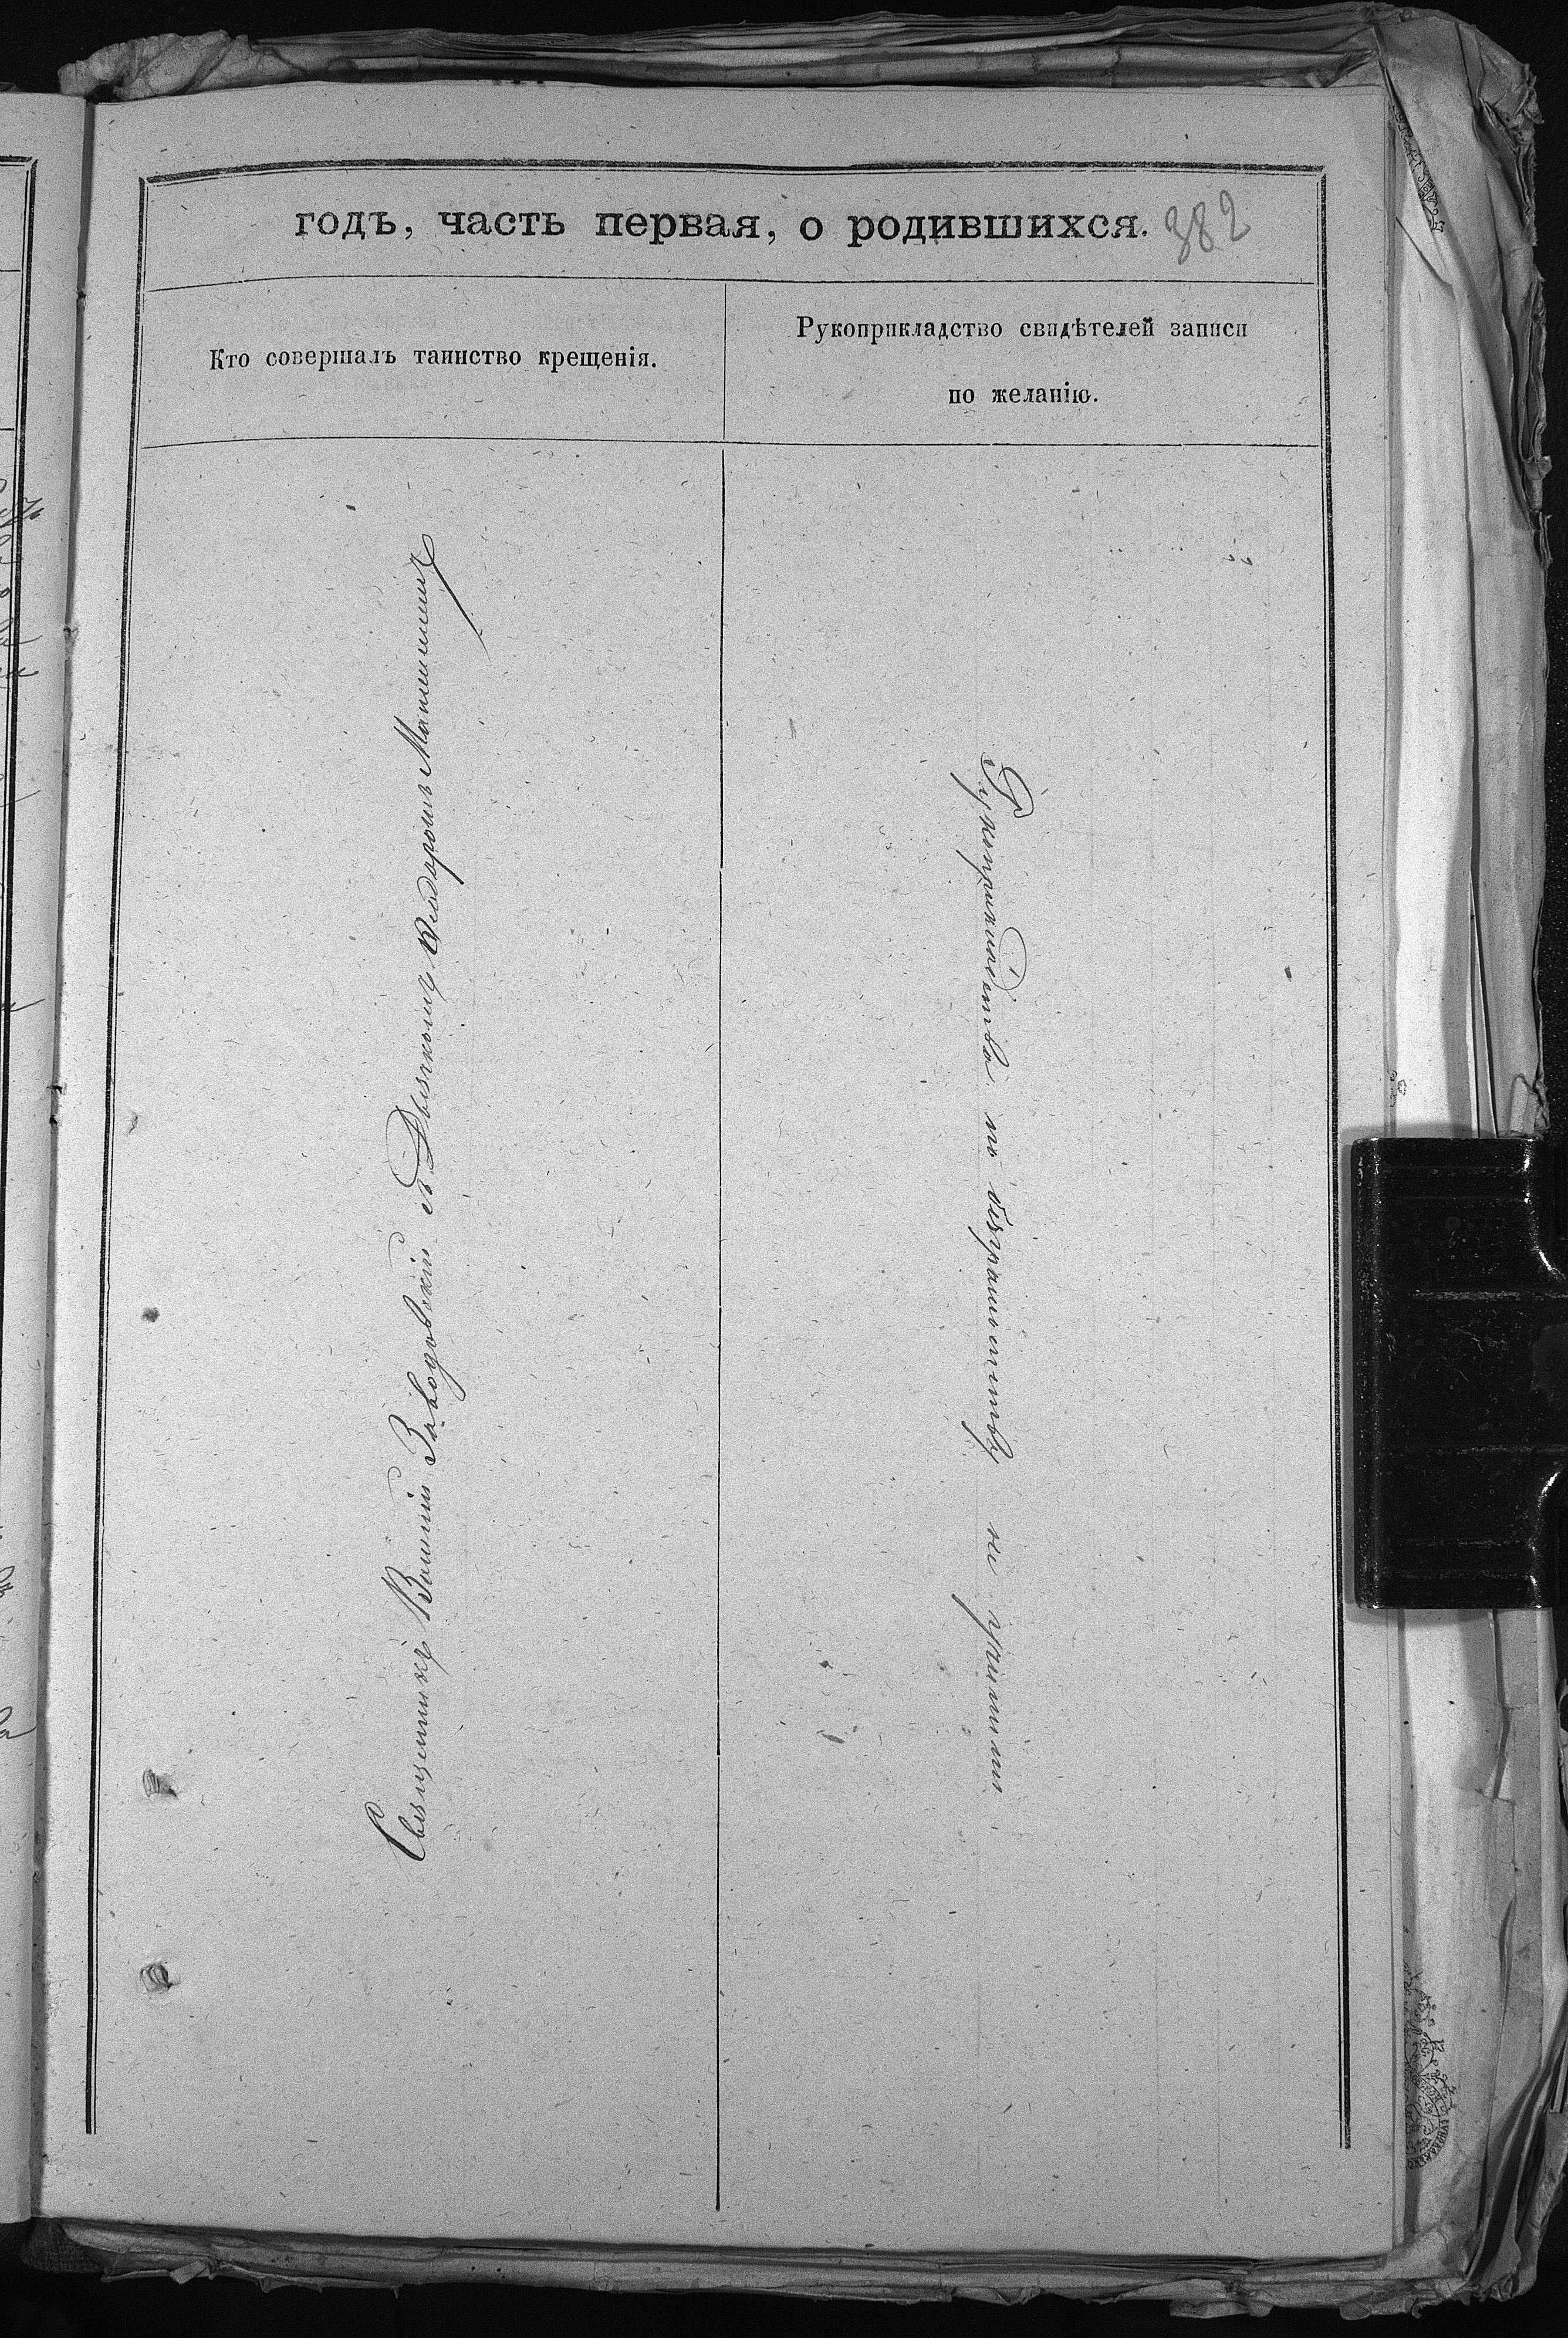 годъ, часть первая, о родившихся. 382
Кто совершалъ таинство крещенія.
Рукоприкладство свидѣтелей записи
по желанію.
Священникъ Василій Заводовскій съ Дьячкомъ Ѳеодоромъ
Рукоприкладства по безграмотству не учинили